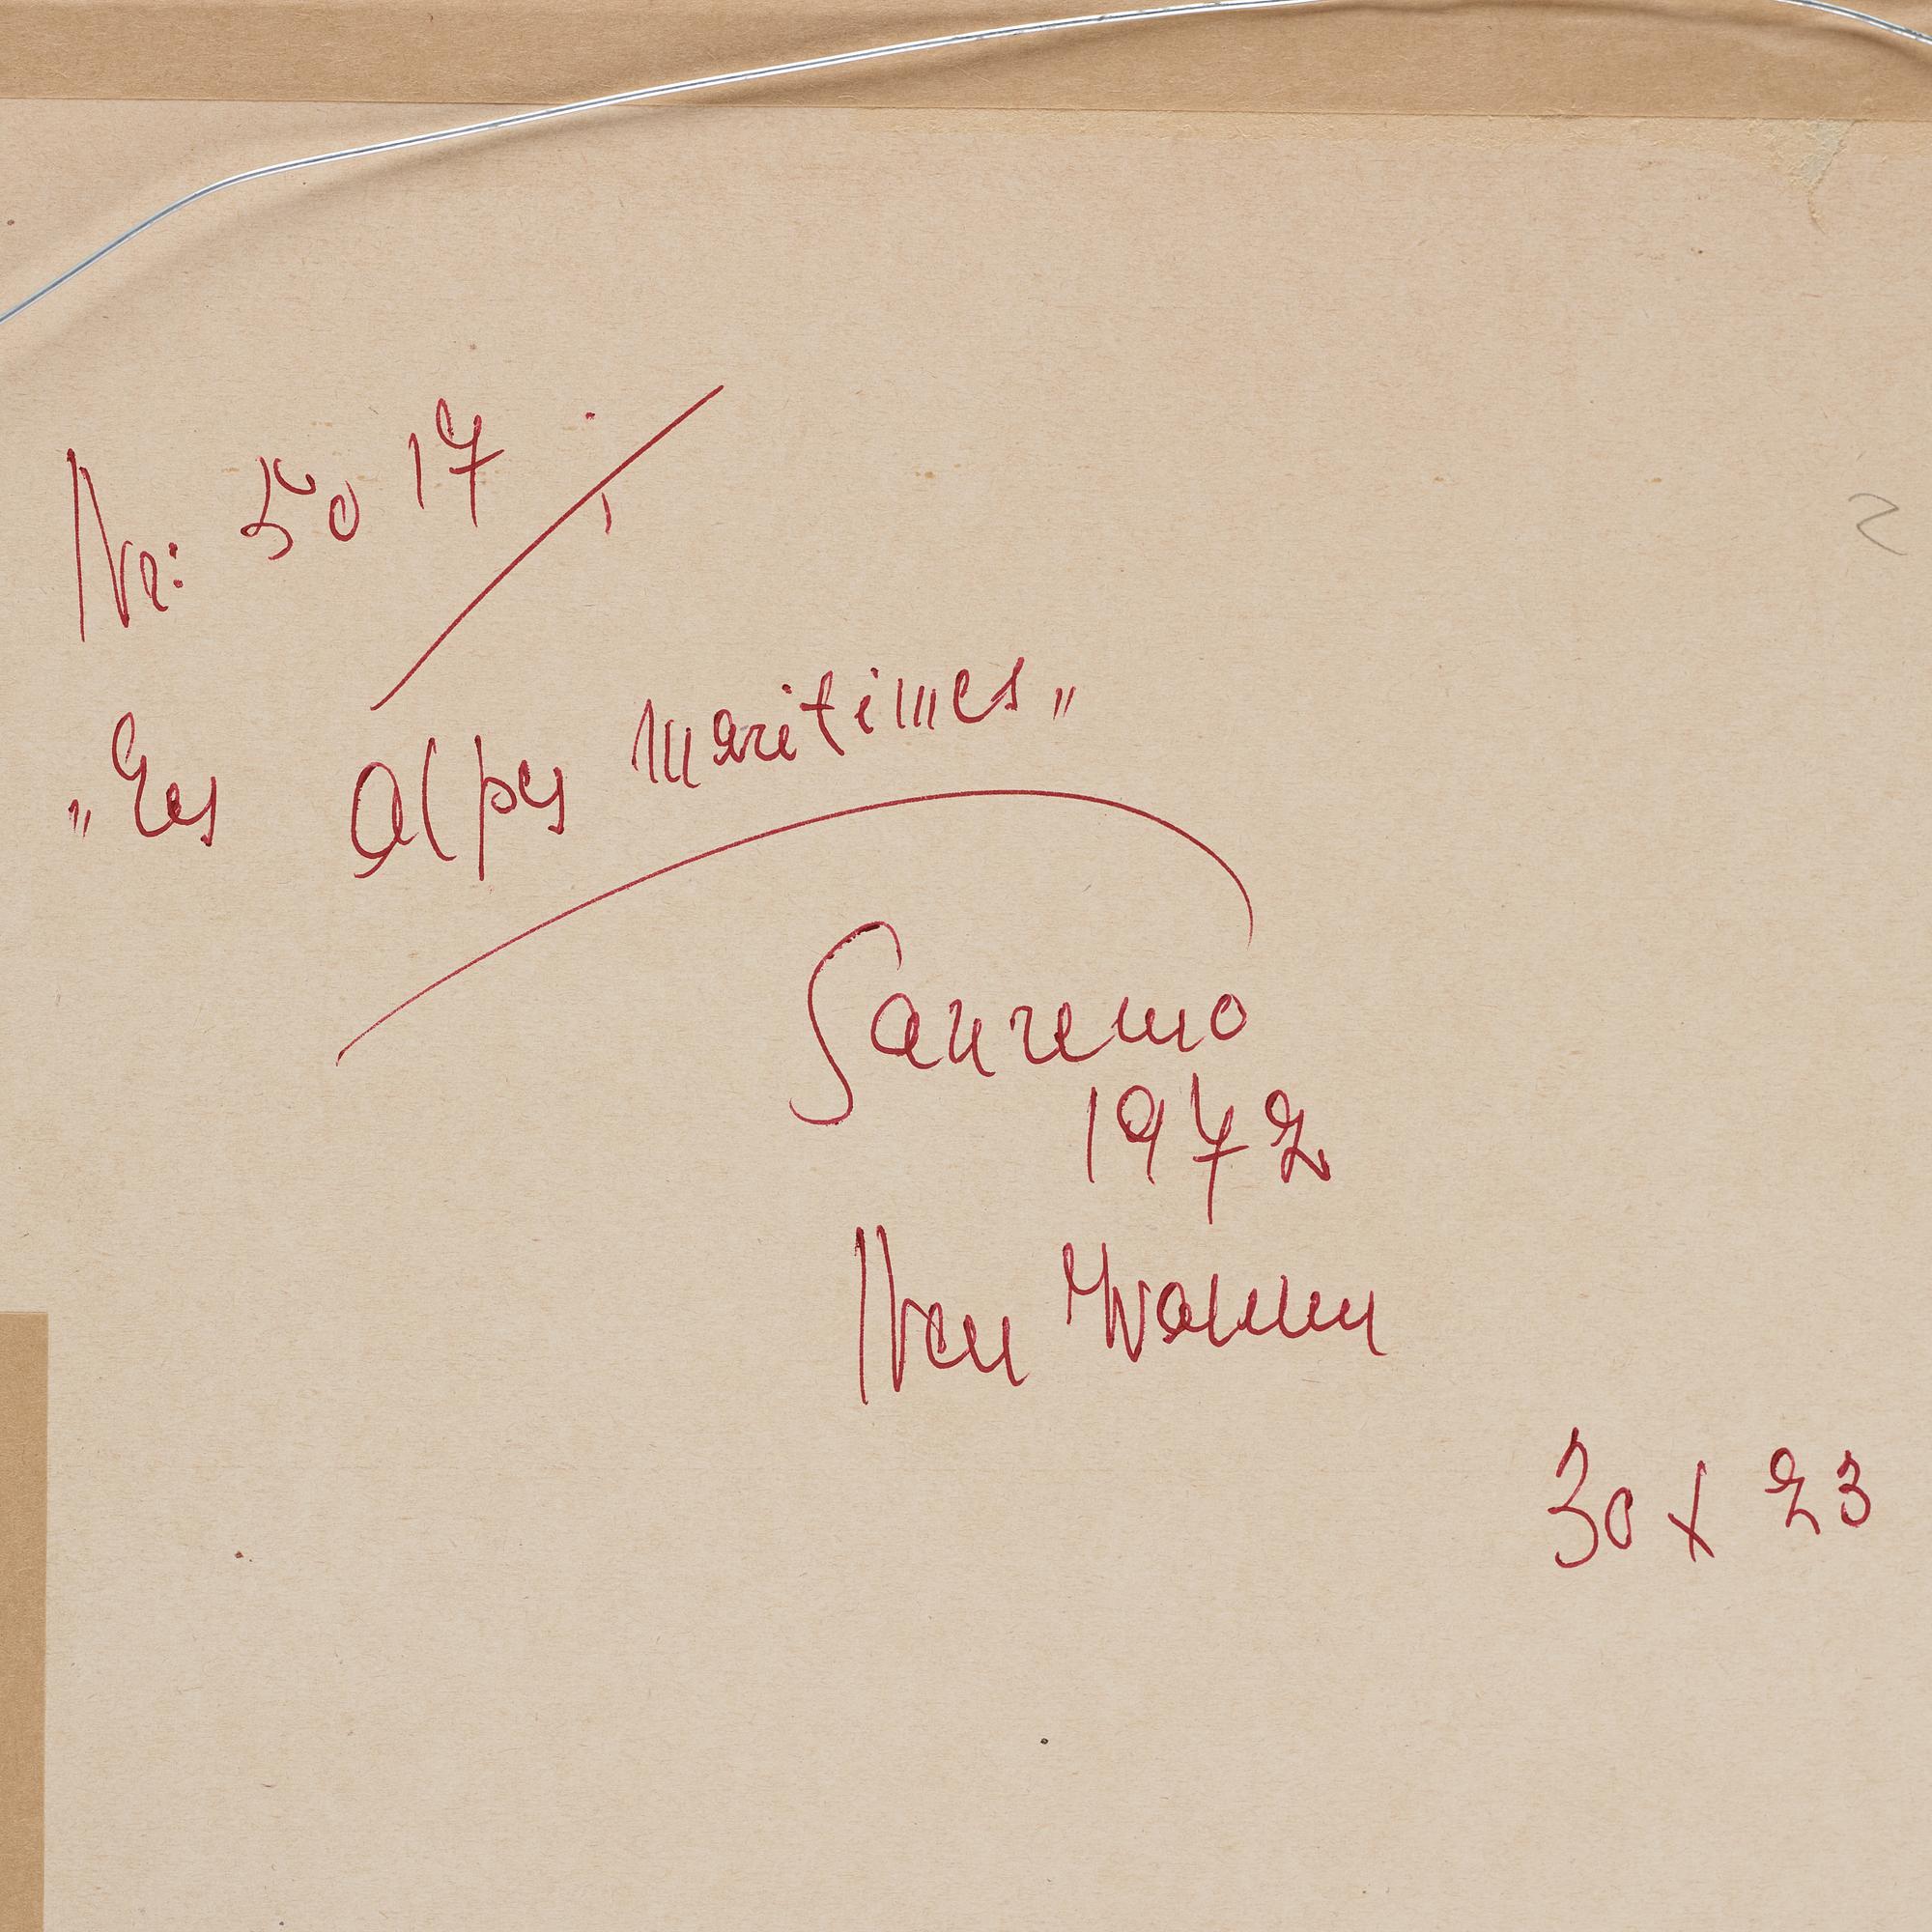 Nr: 5017
„Les Alpes Maritimes„
Sanremo
1972
30 x 23